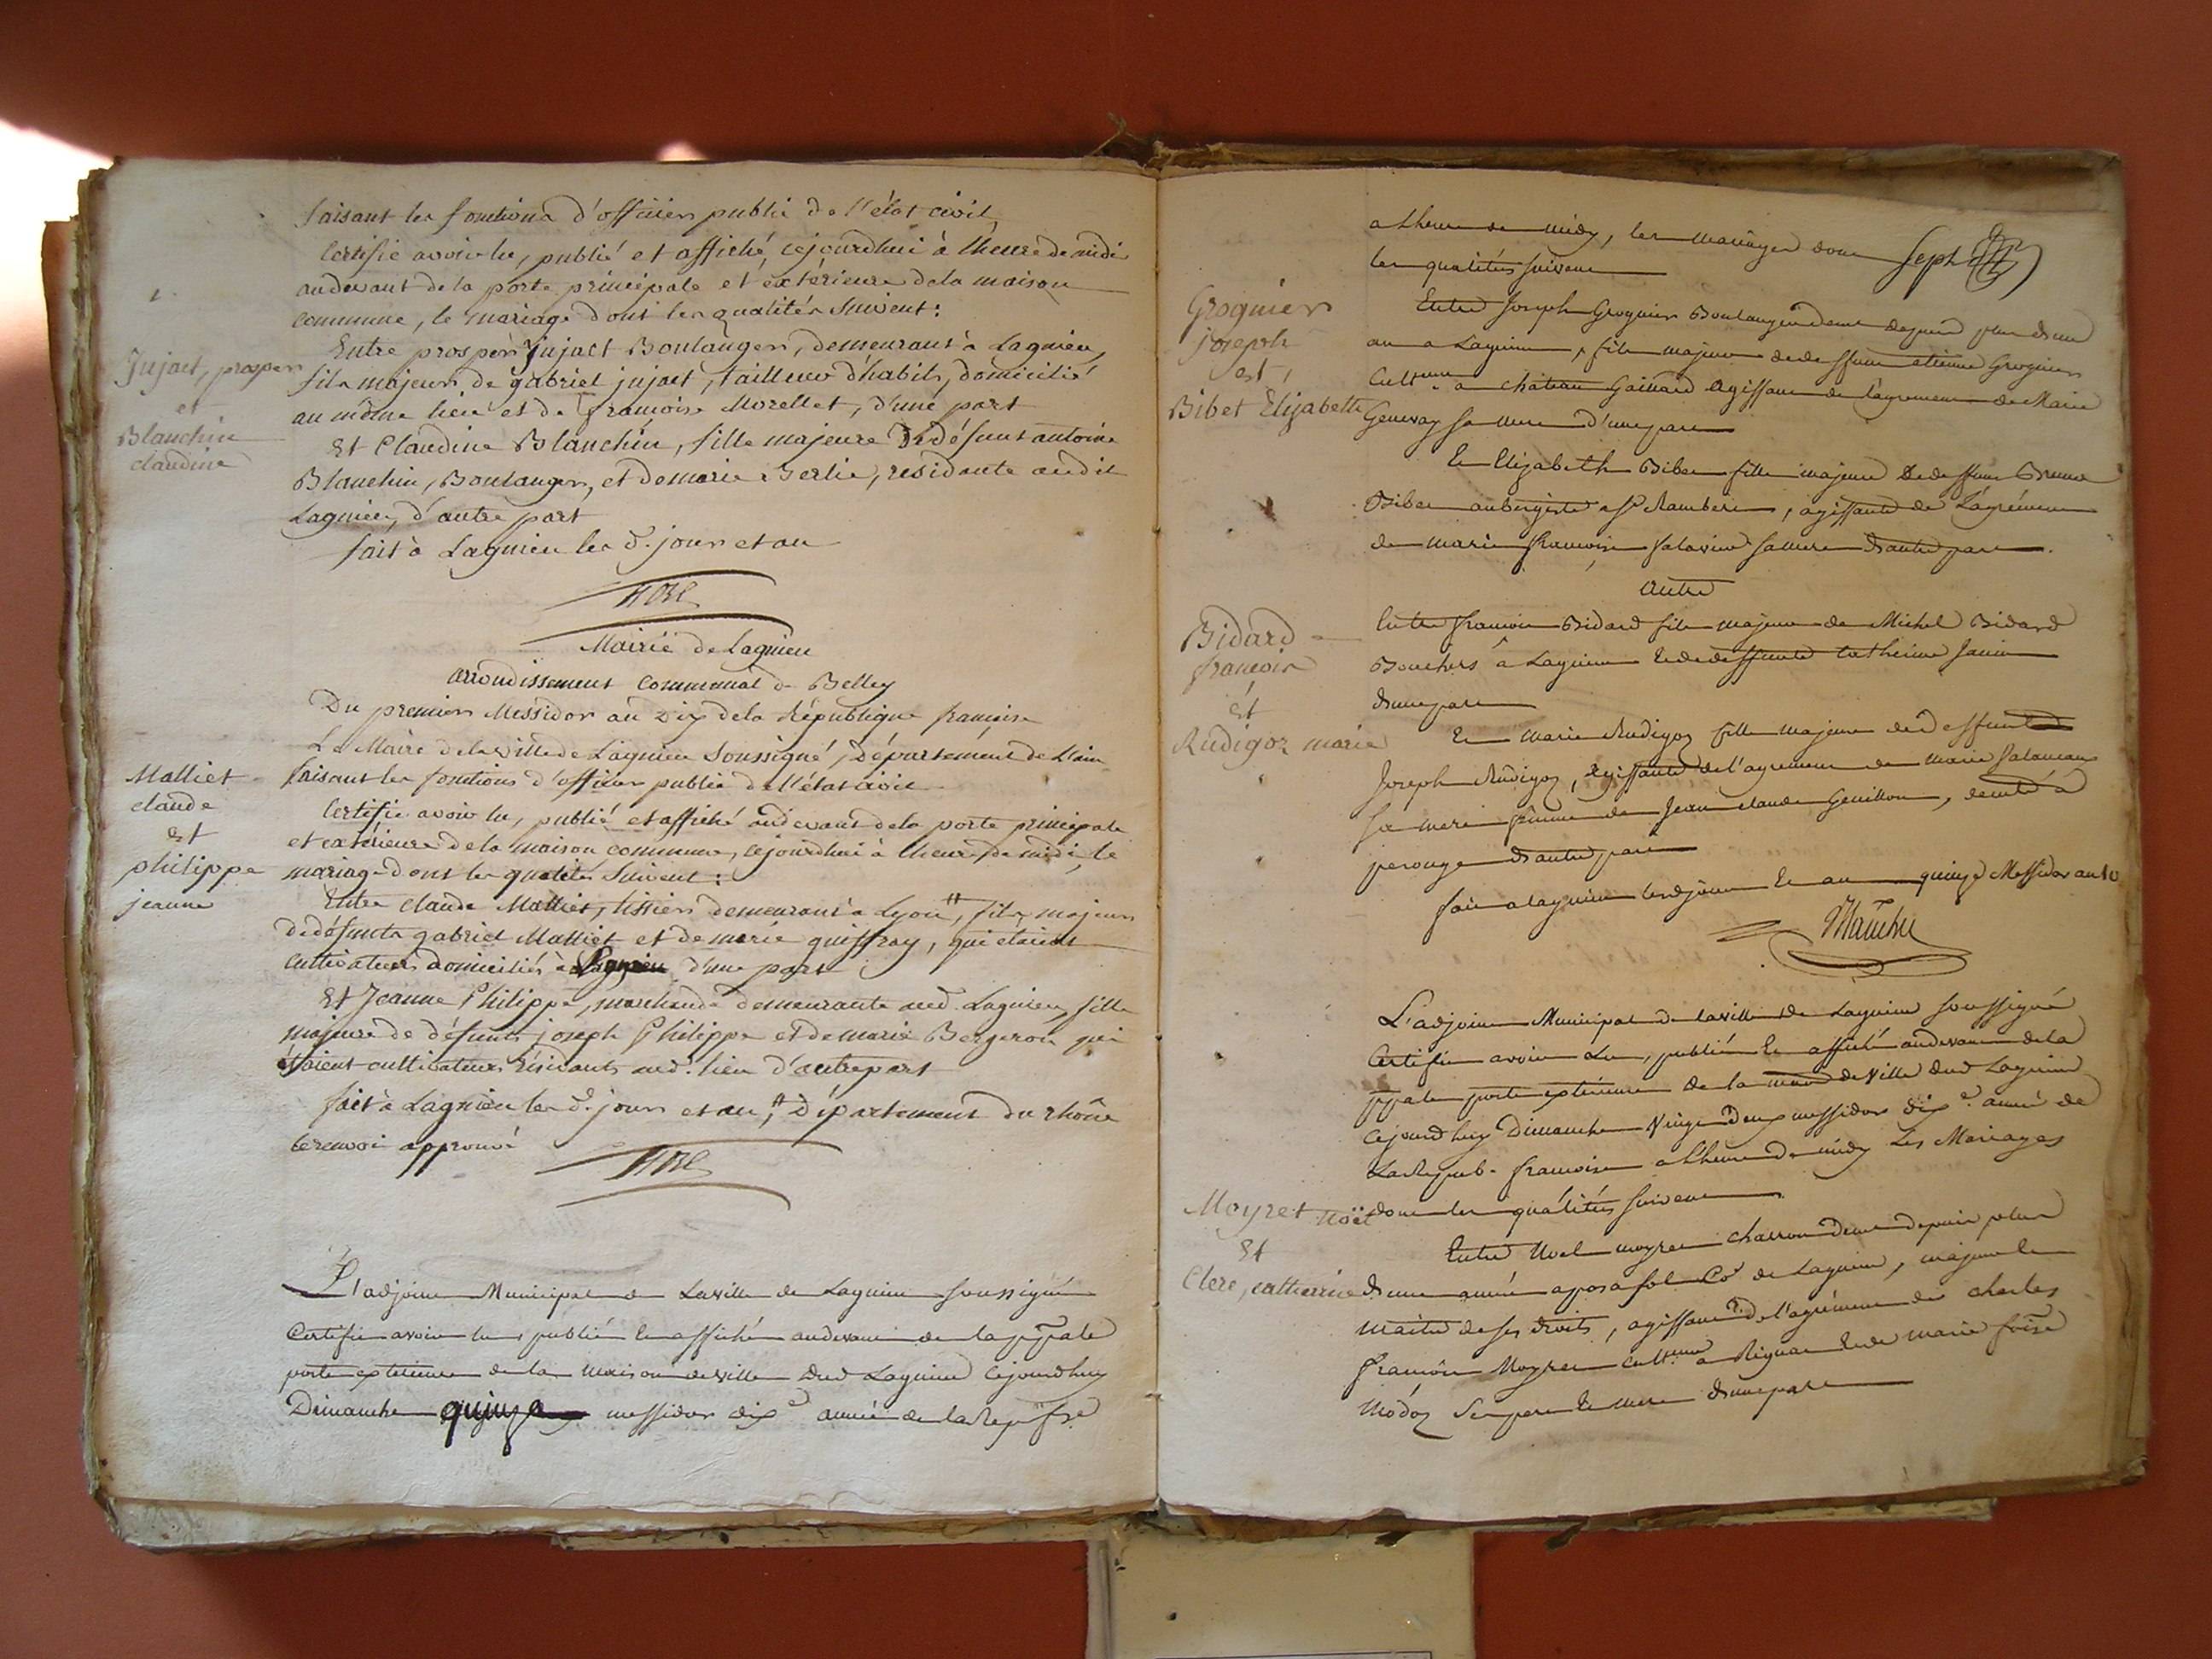 faisant les fonctions d'officier public de l'état civil,
Certifie avoir lu, publié et affiché, cejourdhui à l'heure de midi
audevant de la porte principale et extérieure de la maison
commune, le mariage dont les qualités suivent :
Jujact, prosper
et
Blanchin
claudine
Entre prosper Jujact Boulanger, demeurant à Lagnieu,
fils majeur de gabriel jujact, tailleur d'habits, domicilié
au même lieu et de françoise Morellet, d'une part
Et Claudine Blanchin, fille majeure de défunt antoine
Blanchin, Boulanger, et de marie Gerlie, residante audit
Lagnieu, d'autre part
fait à Lagnieu les d. jour et an
Mairie de Lagnieu
arrondissement communal de Belley
Du premier Messidor an dix de la République françoise
Le Maire de la ville de Lagnieu soussigné, Département de L'ain
faisant les fonctions d'officier public de l'état civil
Malliet
claude
et
philippe
jeanne
Certifie avoir lu, publié et affiché audevant de la porte principale
et extérieure de la maison commune, cejourdhui à l'heure de midi, le
mariage dont les qualités suivent :
Entre claude Malliet, tissier demeurant à Lyon #, fils majeur
de défunts gabriel Malliet et de marie guiffray, qui étaient
cultivateurs domiciliés à Lagnieu d'une part
Et Jeanne Philippe, marchande demeurante aud. Lagnieu, fille
majeure de défunts joseph Philippe et de marie Bergeron qui
étaient cultivateurs résidants aud. lieu d'autre part
fait à Lagnieu les d. jour et an, # Département du rhône
le renvoi approuvé
L'adjoint Municipal de La ville de Lagnieu soussigné
Certifie avoir lu publié et affiché audevant de la ppale
porte exterieure de la maison de ville dud Lagnieu cejourdhuy
Dimanche quinze messidor dix e année de la Rep fse
a Lheure de midy, les mariages dont
les qualités suivent
Grognier
joseph
et
Bibet Elizabeth
Entre Joseph Grognier Boulanger demt depuis plus d'un
an a Lagnieu, fils majeur de deffunt etienne Grognier
Cultr a chateau Gaillard agissant de l'agrement de Marie
Genevay sa mere d'une part
Et Elizabeth Bibet fille majeure de deffunt Bruno
Bibet aubergiste a St Rambert, agissante de L'agrément
de marie françoise salavine sa mere d'autre part.
autre
Bidard
françois
et
Rudigoz marie
Entre françois Bidard fils majeur de Michel Bidard
Bouchers à Lagnieu et de deffunte Catherine Janin
d'une part
Et marie Rudigoz fille majeure de deffunt
Joseph Rudigoz, agissante de l'agrement de marie
sa mere femme de Jean claude Genillon, à
perouge d'autre part
fait a lagnieu les d jour et an quinze Messidor an 10
L'adjoint Municipal de la ville de Lagnieu soussigné
Certifie avoir Lu, publié et affiché audevant de la
ppale porte exterieure de la maison de ville dud Lagnieu
Cejourdhuy Dimanche vingt deux messidor dix e. année de
La Repub. françoise a Lheure de midy Les Mariages
dont les qualités suivent
Moyret noël
et
Clerc, catherine
Entre Noel moyret charron demt depuis plus
d'une année a posafol Co. de Lagnieu, majeur et
maitre de ses droits, agissant de l'agrément de charles
François Moyret cultr a Rignat et de marie foise
Modoz ses pere et mere d'une part